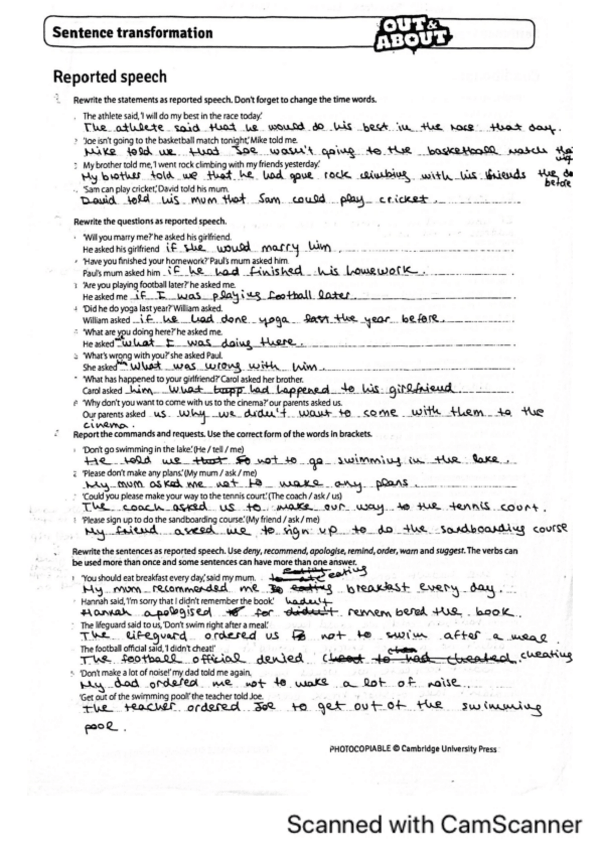 Sentence transformation
OUT & ABOUT
Reported speech
Rewrite the statements as reported speech. Don't forget to change the time words.
The athlete said, 'I will do my best in the race today.'
The athlete said that he would do his best in the race that day.
'Joe isn't going to the basketball match tonight,' Mike told me.
Mike told me that Joe wasn't going to the basketball match that
My brother told me, 'I went rock climbing with my friends yesterday.'
My brother told me that he had gone rock climbing with his friends the
before
'Sam can play cricket,' David told his mum.
David told his mum that Sam could play cricket.
Rewrite the questions as reported speech.
'Will you marry me?' he asked his girlfriend.
He asked his girlfriend if she would marry him.
'Have you finished your homework?' Paul's mum asked him.
Paul's mum asked him if he had finished his homework.
'Are you playing football later?' he asked me.
He asked me if I was playing football later.
'Did he do yoga last year?' William asked.
William asked if he had done yoga last the year before.
'What are you doing here?' he asked me.
He asked me what I was doing there.
'What's wrong with you?' she asked Paul.
She asked what was wrong with him.
'What has happened to your girlfriend?' Carol asked her brother.
Carol asked him what had happened to his girlfriend
'Why don't you want to come with us to the cinema?' our parents asked us.
Our parents asked us why we didn't want to come with them to the
cinema.
Report the commands and requests. Use the correct form of the words in brackets.
'Don't go swimming in the lake.' (He / tell / me)
He told me not to go swimming in the lake.
'Please don't make any plans.' (My mum / ask / me)
My mum asked me not to make any plans.
'Could you please make your way to the tennis court.' (The coach / ask / us)
The coach asked us to make our way to the tennis court.
'Please sign up to do the sandboarding course.' (My friend / ask / me)
My friend asked me to sign up to do the sandboarding course
Rewrite the sentences as reported speech. Use deny, recommend, apologise, remind, order, warn and suggest. The verbs can
be used more than once and some sentences can have more than one answer.
'You should eat breakfast every day,' said my mum.
eating
My mum recommended me breakfast every day.
Hannah said, 'I'm sorry that I didn't remember the book.'
hadn't
Hannah apologised for didn't remembered the book.
The lifeguard said to us, 'Don't swim right after a meal.'
The lifeguard ordered us not to swim after a meal.
The football official said, 'I didn't cheat!'
The football official denied cheat to had cheated cheating
'Don't make a lot of noise!' my dad told me again.
My dad ordered me not to make a lot of noise.
'Get out of the swimming pool!' the teacher told Joe.
The teacher ordered Joe to get out of the swimming
pool.
PHOTOCOPIABLE © Cambridge University Press
Scanned with CamScanner